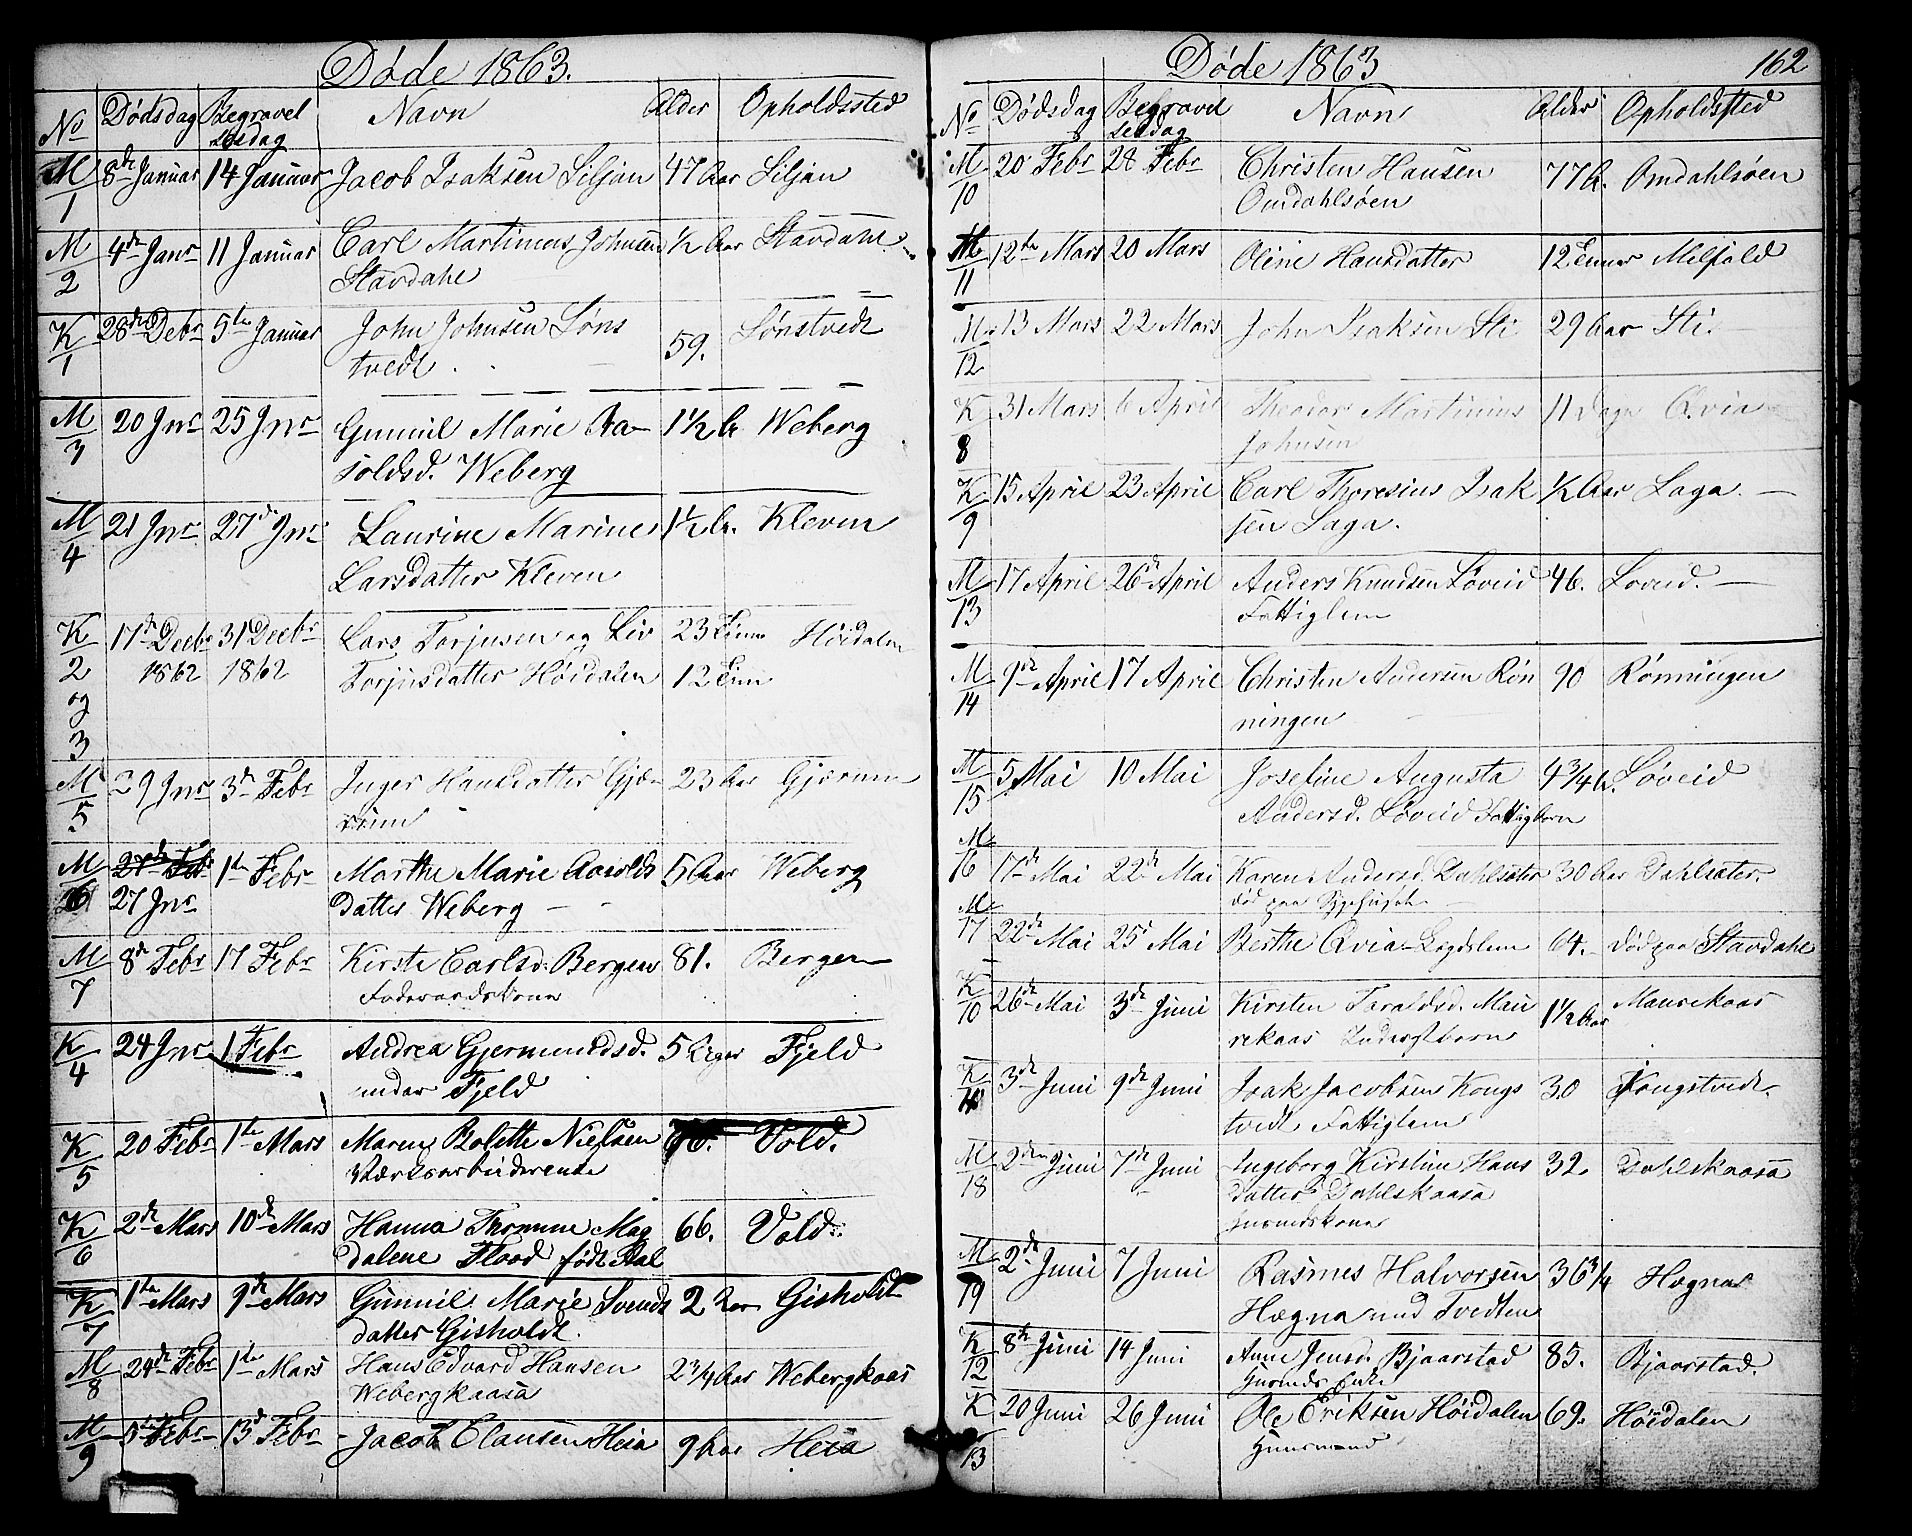 Døde 1863.
No Dødsdag Begravel Navn Alder Opholdssted
sesdag
M 8de Januar 14 Januar Jacob Isaksen Siljan 47 Aar Siljan
1
M 4de Janr 11 Januar Carl Martinus Johnsen ½ Aar Stavdahl
2 Stavdahl
K 28de Debr 5te Januar John Johnsen Løns 59. Lønstvedt
1 tvedt.
M 20 Jnr 25 Jnr Gunnil Marie Aa- 1½ A. Weberg
3 soldsd. Weberg
M 21 Jnr 27de Jnr Laurine Marine 1½ A. Kleven
4 Larsdatter Kleven
K 17de Decbr 31 Decbr Lars Torjusen og Liv 23 Høidalen
2 1862 1862 Torjusdatter Høidalen 12
og
3
M 29 Jnr 3de Febr Inger Hansdatter Gjæ- 23 Aar Gjærum
5 rum
M 27de Feb 1te Febr Marthe Marie Aasolds 5 Aar Weberg
6 27 Jnr datter Weberg
M 8de Febr 17 Febr Kirsti Carlsd. Bergen 81. Bergen
7 Foderaadskone
K 24 Jnr 1 Febr Andrea Gjermundsd. 5 Fjeld
4 under Fjeld
K 20 Febr 1te Mars Maren Bolette Nielsen Vold.
5 Værksarbeiderenke
K 2de Mars 10de Mars Hanna Thomine Mag 66. Vold.
6 dalene Flood født Aal
K 1te Mars 9de Mars Gunnil Marie Svends 2 Aar Gisholdt
7 datter Gisholdt.
M 24de Febr 1te Mars Hans Edvard Hansen 2¾ Aar Webergkaas
8 Webergkaasa
M 5te Febr 13de Febr Jacob Clausen Heia 9 Aar Heia
9
Døde 1863 162
No Dødsdag Begravel Navn Alder Opholdssted
sesdag
M 20 Febr 28 Febr Christen Hansen 77 A. Omdahlsøen
10 Omdahlsøen
M 12te Mars 20 Mars Oline Hansdatter 12 Melfald
11
M 13 Mars 22 Mars John Isaksen Sti 29 Aar Sti.
12
K 31 Mars 6 April Theodor Martinius 11 Dage Qvia
8 Johnsen
K 15 April 23 April Carl Thoresius Isak ½ Aar Laga.
9 sen Laga.
M 17 April 26de April Anders Knudsen Løveid 46. Løveid.
13 Fattiglem
M 9de April 17 April Christen Andersen Røn 90 Rønningen
14 ningen
M 5 Mai 10 Mai Josefine Augusta 4¾ A. Løveid
15 Andersd. Løveid Fattigbarn
M
16 17de Mai 22de Mai Karen Andersd. Dahlsæter 30 Aar Dahlsæter.
død paa Sygehuset
M
17 22de Mai 25de Mai Berthe Qvia Lægdslem 64. død paa Stavdahl
K 26de Mai 3de Juni Kirsten Taraldsd. Mau 1½ Aar Maurekaas
10 rekaas
K 3de Juni 9de Juni Isak Jacobsen Kongs 30 Kongstvedt.
11 tvedt Fattiglem
M 2den Juni 7de Juni Ingeborg Kirstine Hans 32. Dahlskaasa
18 datter Dahlskaasa
Huusmandskone
M 2de Juni 7 Juni Rasmus Halvorsen 36¾ Hægna
19 Hægna und Tvedten
K 8de Juni 14 Juni Anne Jensd. Bjaarstad 85. Bjaarstad.
12 Huusmds Enke
K 20 Juni 26 Juni Ole Eriksen Høidalen 69. Høidalen
13 Huusmand